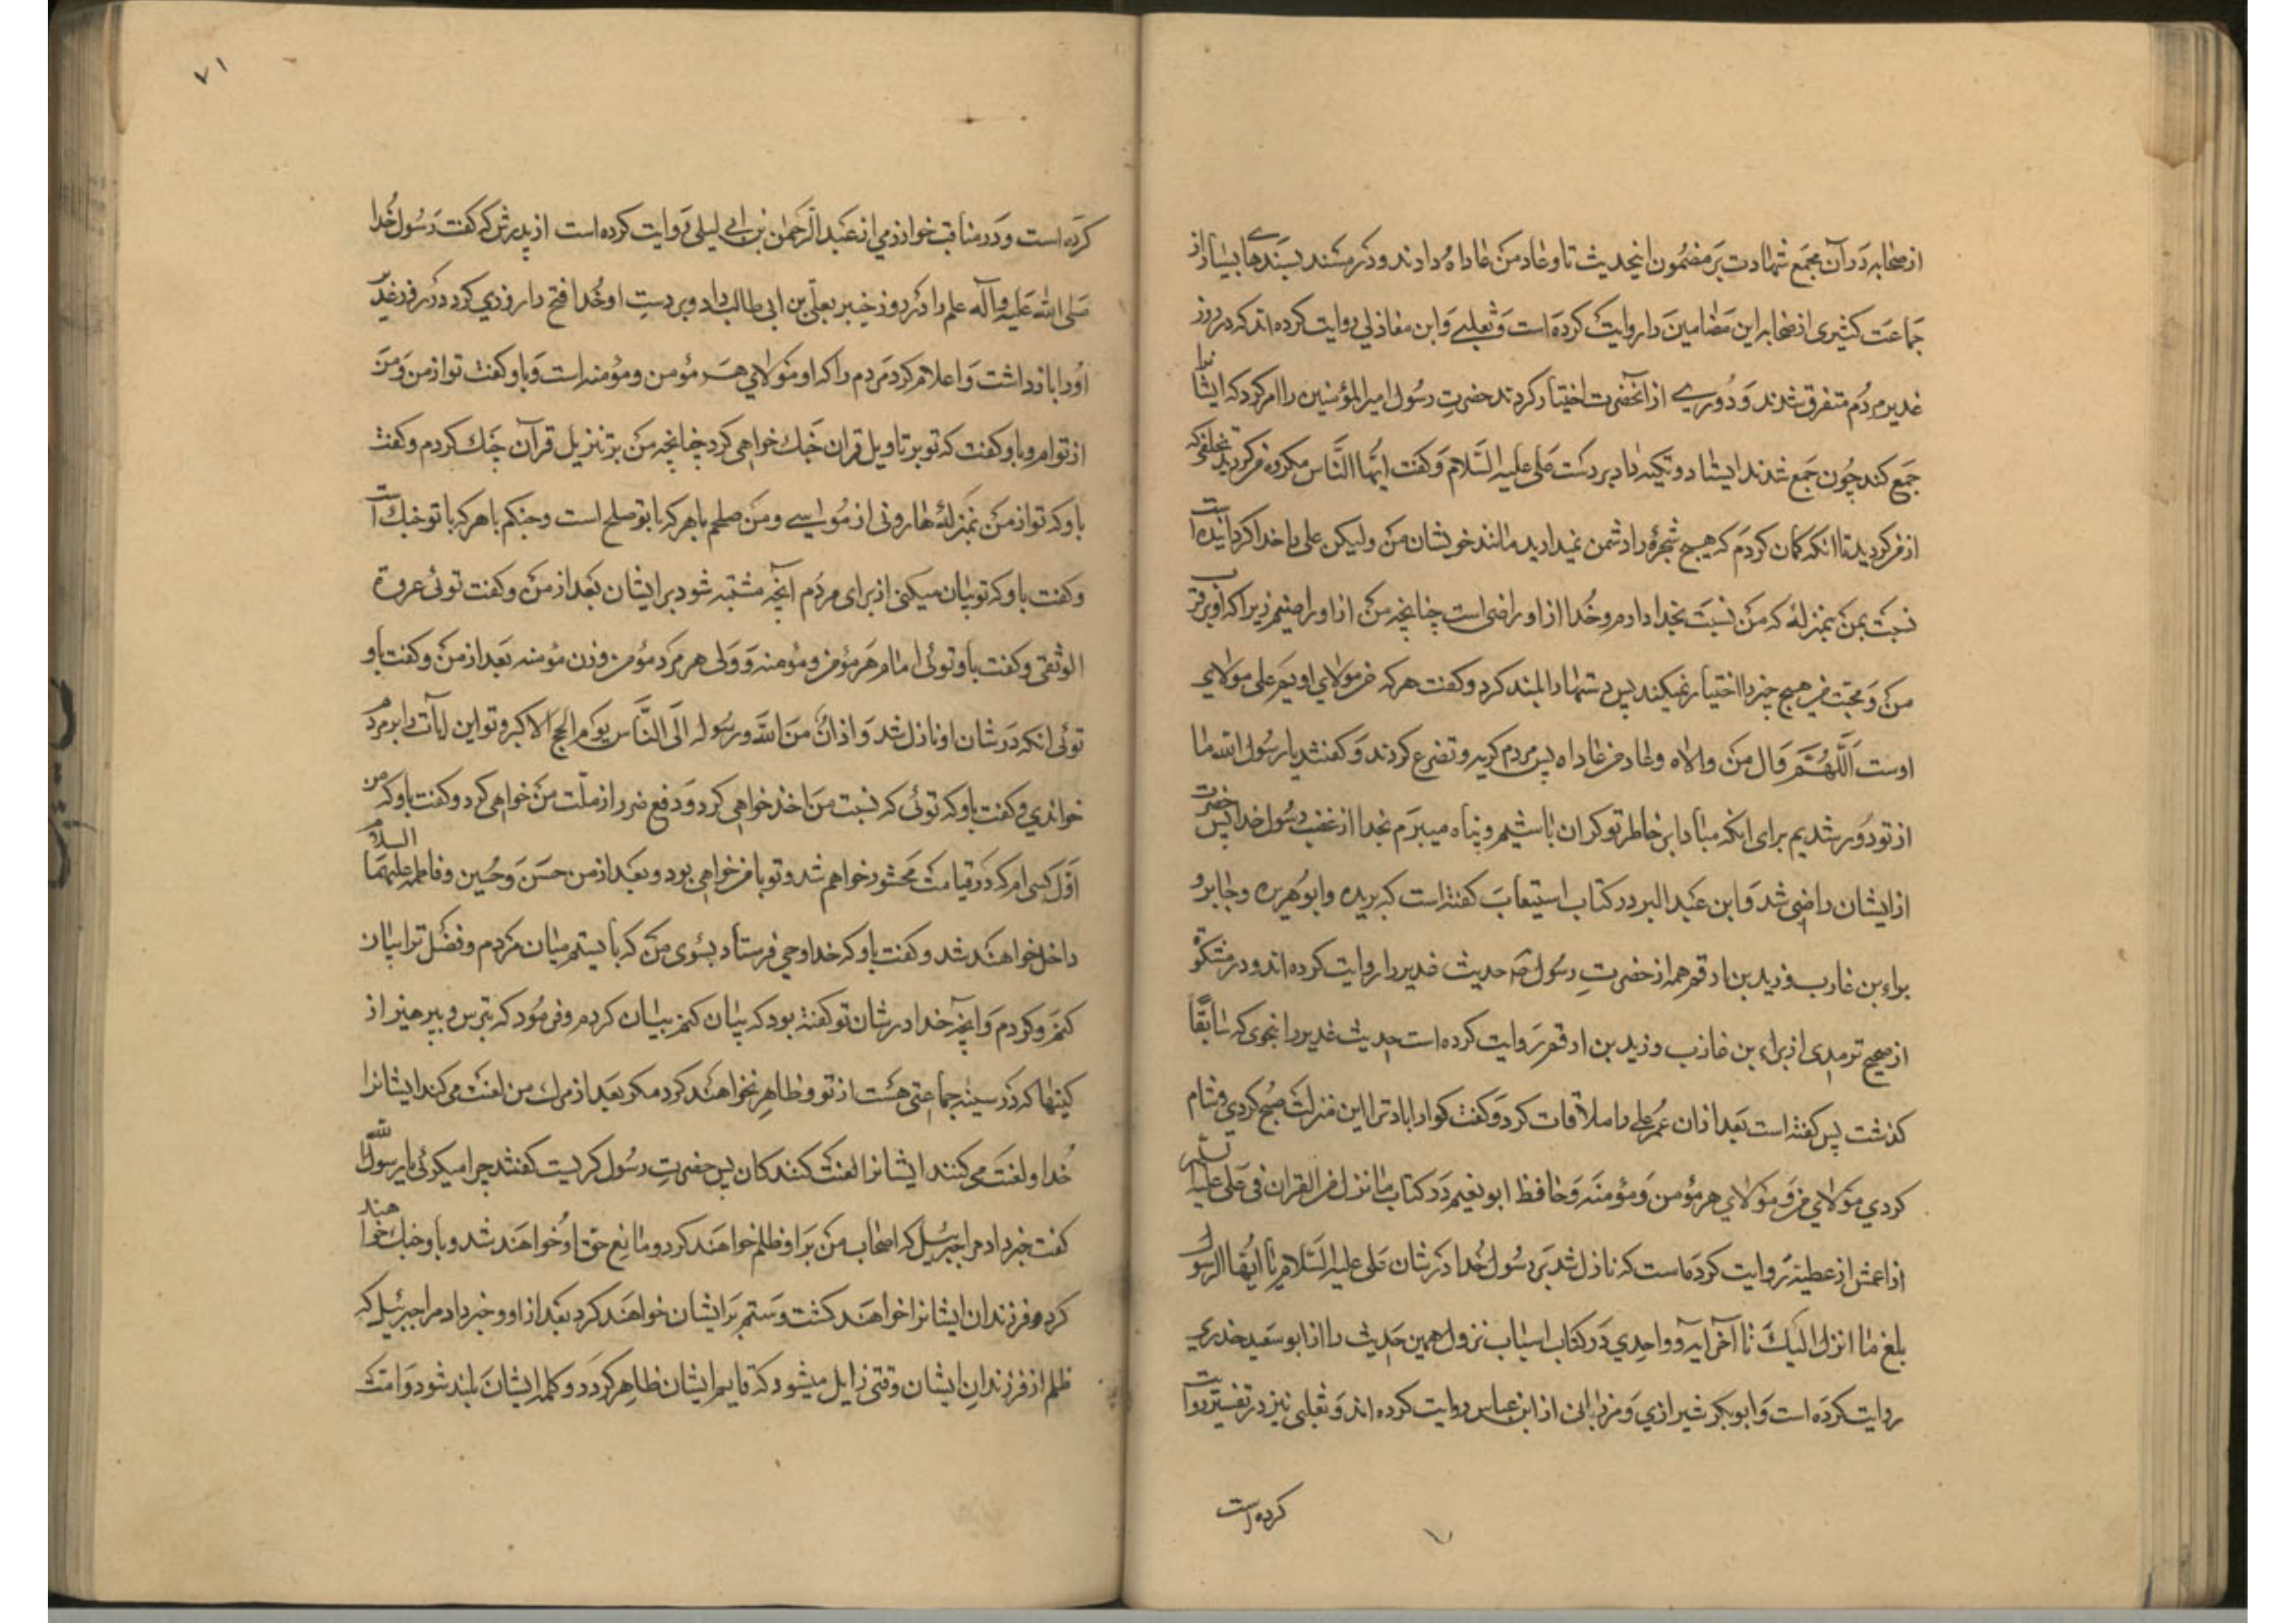 از صحابه در آن مجمع شهادت بر مضمون این حدیث تا و عاد من عاداه دادند و در مسند بسندهای بسیار از
جماعت کثیری از صحابه این مضامین را روایت کرده است و ثعلبی و ابن مغازلی روایت کرده اند که در روز
غدیر مردم متفرق شدند و دوری از آنحضرت اختیار کردند حضرت رسول امیرالمؤمنین را امر کرد که ایشانرا
جمع کند چون جمع شدند ایستاد و تکیه داد بر دست علی علیه السلام و گفت ایها الناس مکروه من کردید تخلفی که
از من کردید تا انکه کمان کردم که هیچ شجرهٔ را دشمن نمیدارید مانند خویشان من ولیکن علی را خدا کردانیده است
نسبت بمن بمنزلهٔ که من نسبت بخدا دارم و خدا از او راضی است چنانچه من از او راضیم زیرا که او بر قرب
من و محبت من هیچ چیز را اختیار نمیکند پس دستها را بلند کرد و گفت هر که من مولای اویم علی مولای
اوست اللهم وال من والاه و عاد من عاداه پس مردم گریه و تضرع کردند و گفتند یا رسول الله ما
از تو دور شدیم برای انکه مبادا بر خاطر تو گران باشیم و پناه میبریم بخدا از غضب رسول خدا پس حضرت
از ایشان راضی شد و ابن عبد البر در کتاب استیعاب گفته است که بریده و ابو هریره و جابر و
براء بن عازب و زید بن ارقم همه از حضرت رسول ص حدیث غدیر را روایت کرده اند و در مشکوة
از صحیح ترمدی از براء بن عازب و زید بن ارقم روایت کرده است حدیث غدیر را بنحوی که سابقًا
گذشت پس گفته است بعد از ان عمر علی را ملاقات کرد و گفت گوارا باد ترا این منزلت صبح کردی و شام
کردی مولای من و مولای هر مؤمن و مؤمنه و حافظ ابو نعیم در کتاب ما نزل من القران فی علی علیه
از اعمش از عطیه روایت کرده است که نازل شد بر رسول خدا در شان علی علیه السلام یا ایها الرسول
بلغ ما انزل الیک تا آخر آیه و واحدی در کتاب اسباب نزول همین حدیث را از ابو سعید خدری
روایت کرده است و ابو بکر شیرازی و مرزبانی از ابن عباس روایت کرده اند و ثعلبی نیز در تفسیر روایت
کرده است
۷۱
کرده است و در مناقب خوارزمی از عبد الرحمن بن ابی لیلی روایت کرده است از پدرش که گفت رسول خدا
صلی الله علیه و آله علم را در روز خیبر بعلی بن ابی طالب داد و بر دست او خدا فتح را روزی کرد و در روز غدیر
او را بازداشت و اعلام کرد مردم را که او مولای هر مؤمن و مؤمنه است و باو گفت تو از من و من
از توام و باو گفت که تو بر تاویل قران جنك خواهی کرد چنانچه من بر تنزیل قرآن جنك کردم و گفت
باو که تو از من بمنزلهٔ هارونی از موسی و من صلحم با هر که با تو صلح است و جنکم با هر که با تو جنك است
و گفت باو که تو بیان میکنی از برای مردم آنچه مشتبه شود بر ایشان بعد از من و گفت توئی عروة
الوثقی و گفت باو توئی امام هر مؤمن و مؤمنه و ولی هر مرد مؤمن و زن مؤمنه بعد از من و گفت باو
توئی انکه در شان او نازل شد و اذان من الله و رسوله الی الناس یوم الحج الاکبر و تو این ایات را بر مردم
خواندی و گفت باو که توئی که نسبت من اخذ خواهی کرد و دفع ضرر از ملت من خواهی کرد و گفت باو که من
اول کسی ام که در قیامت محشور خواهم شد و تو با من خواهی بود و بعد از من حسن و حسین و فاطمه علیهما السلام
داخل خواهند شد و گفت باو که خدا وحی فرستاد بسوی من که بایستم میان مردم و فضل ترا بیان
کنم و کردم و آنچه خدا در شان تو گفته بود که بیان کنم بیان کردم و فرمود که بترس و بپرهیز از
کینها که در سینه جماعتی هست از تو و ظاهر نخواهند کرد مکر بعد از مرك من لعنت می کند ایشانرا
خدا و لعنت می کنند ایشانرا لعنت کنندکان پس حضرت رسول گریست گفتند چرا میگوئی یا رسول الله
گفت خبر داد مرا جبرئیل که اصحاب من بر او ظلم خواهند کرد و مانع حق او خواهند شد و باو جنك خواهند
کرد و فرزندان ایشانرا خواهند کشت و ستم بر ایشان خواهند کرد بعد از او و خبر داد مرا جبرئیل که
ظلم از فرزندان ایشان وقتی زایل میشود که قایم ایشان ظاهر گردد و کلمه ایشان بلند شود و امت